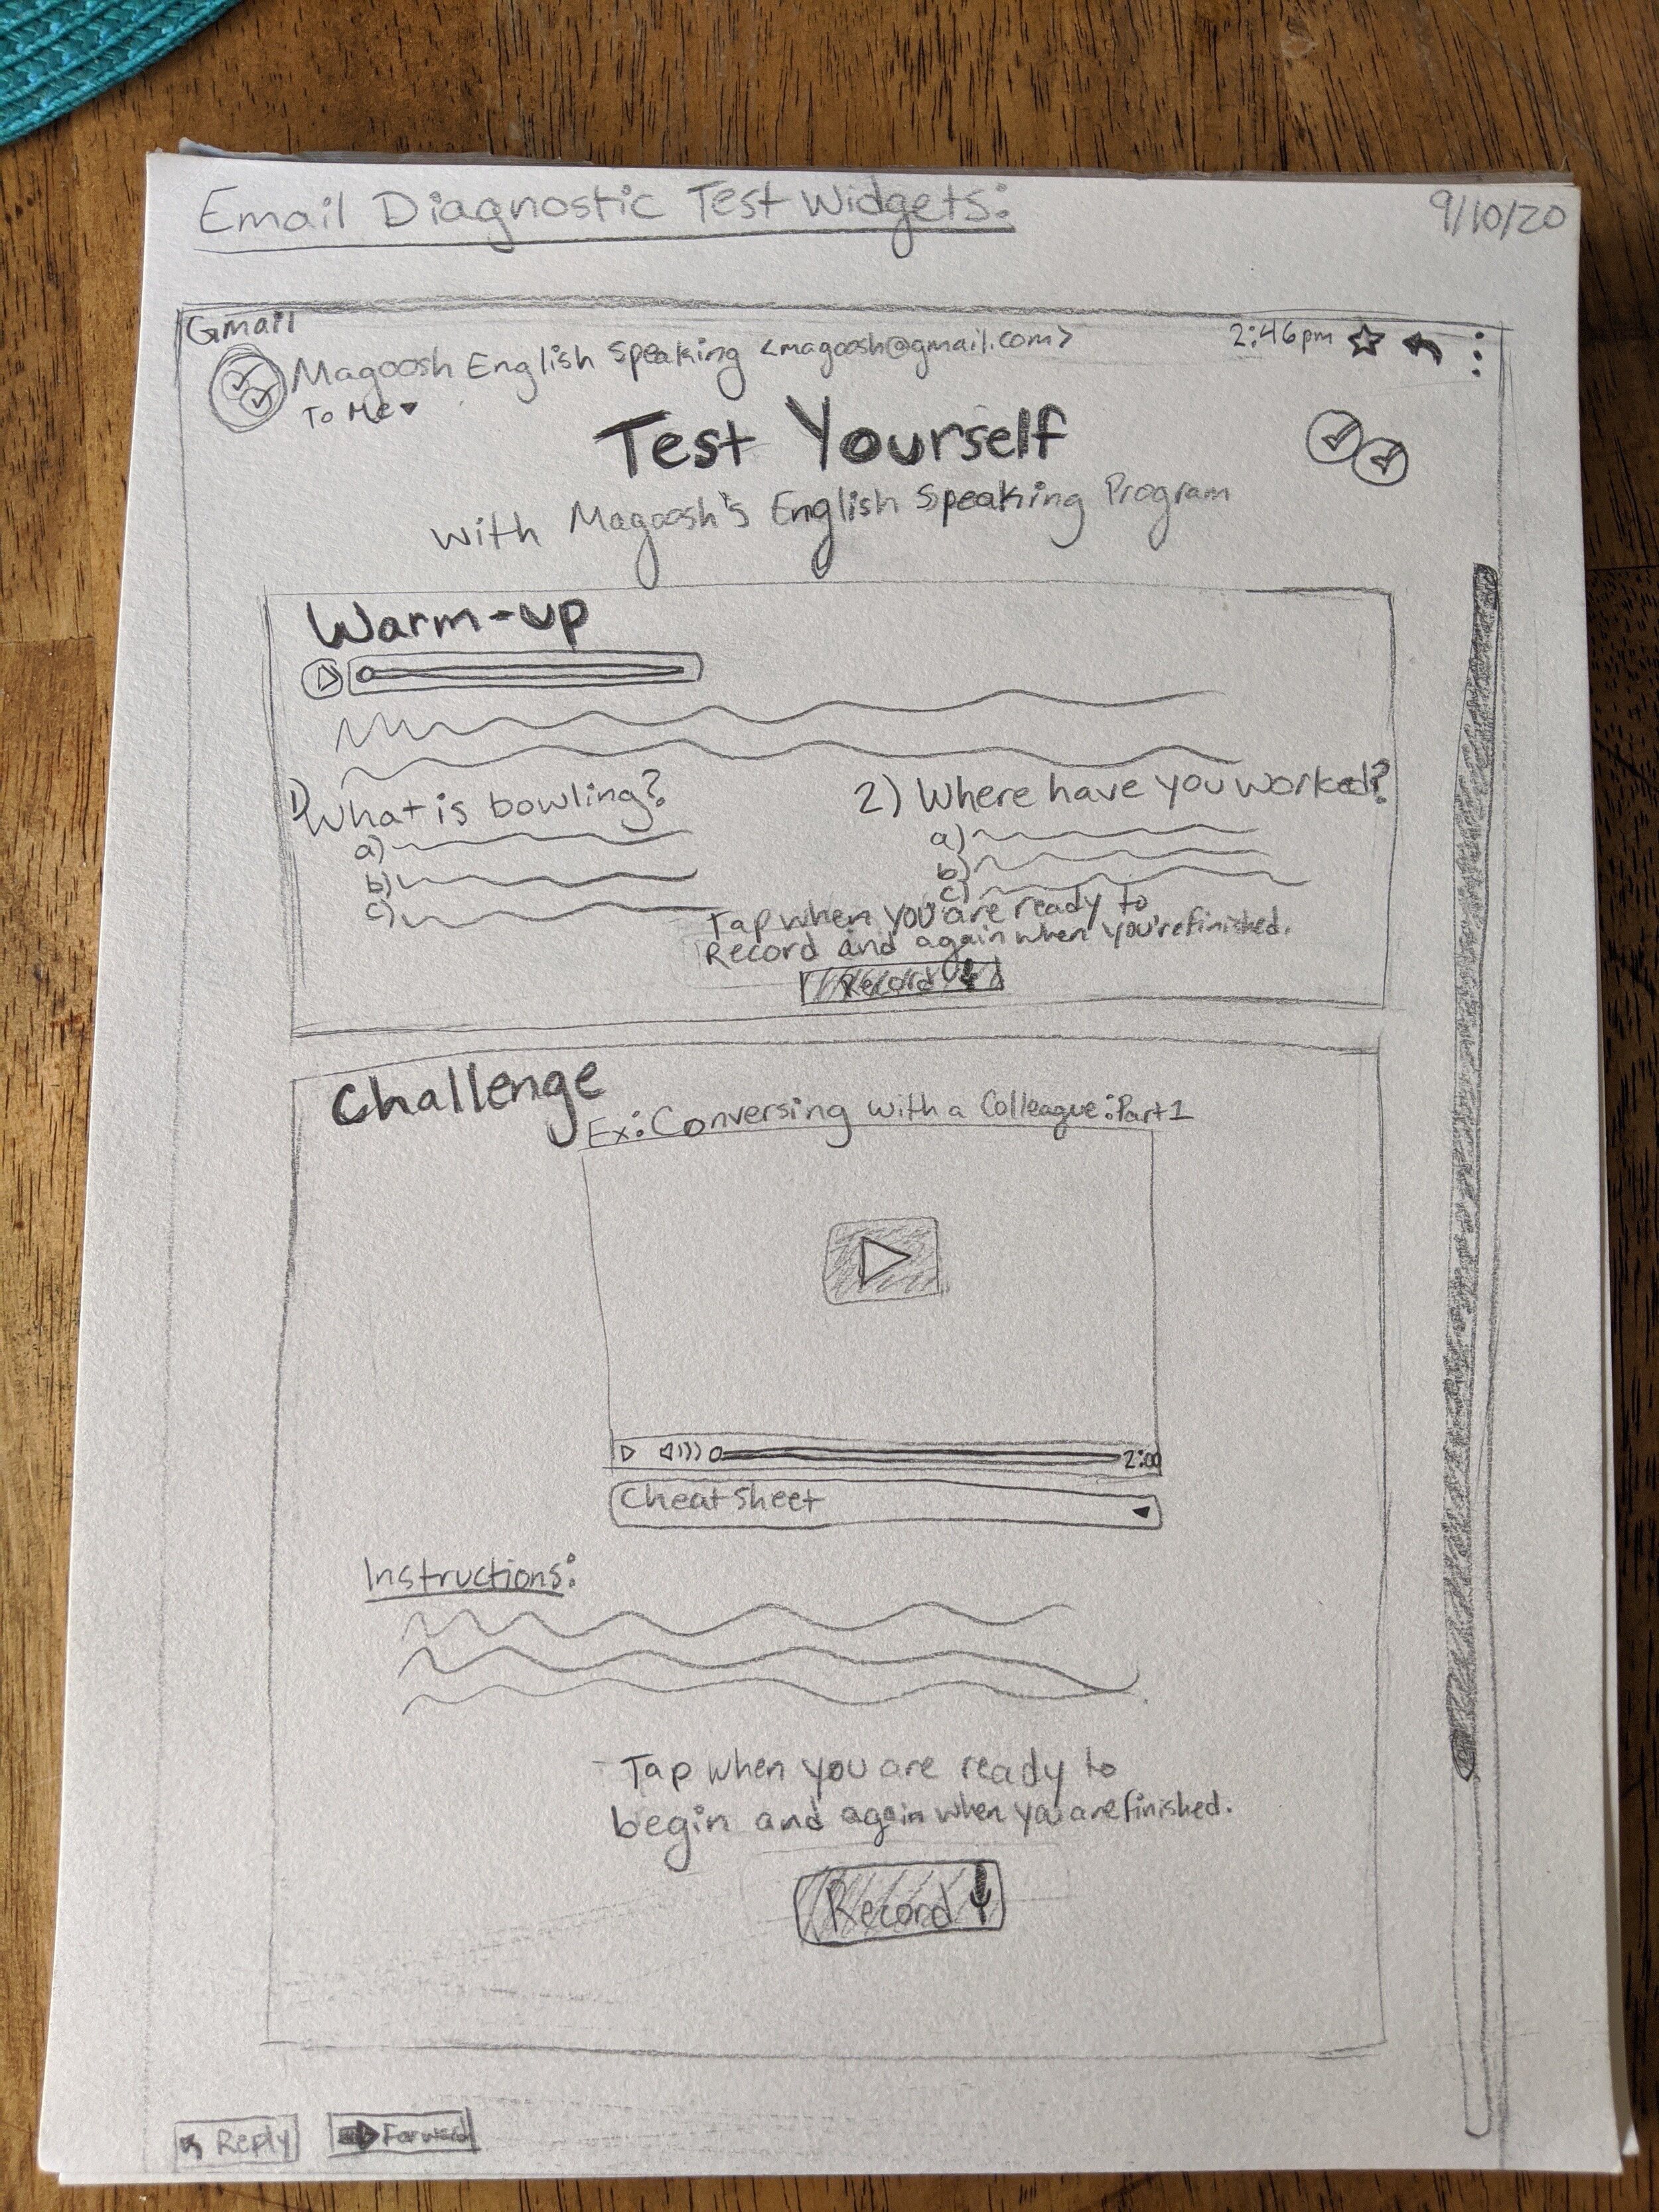 Email Diagnostic Test Widgets:
9/10/20
Gmail
Magoosh English Speaking <magoosh@gmail.com>
2:46pm
To Me
Test Yourself
with Magoosh's English Speaking Program
Warm-up
1) What is bowling?
a)
b)
c)
2) Where have you worked?
a)
b)
c)
Tap when you are ready to
Record and again when you're finished.
Record
Challenge
Ex: Conversing with a Colleague: Part 1
2:00
Cheat Sheet
Instructions:
Tap when you are ready to
begin and again when you are finished.
Record
Reply
Forward